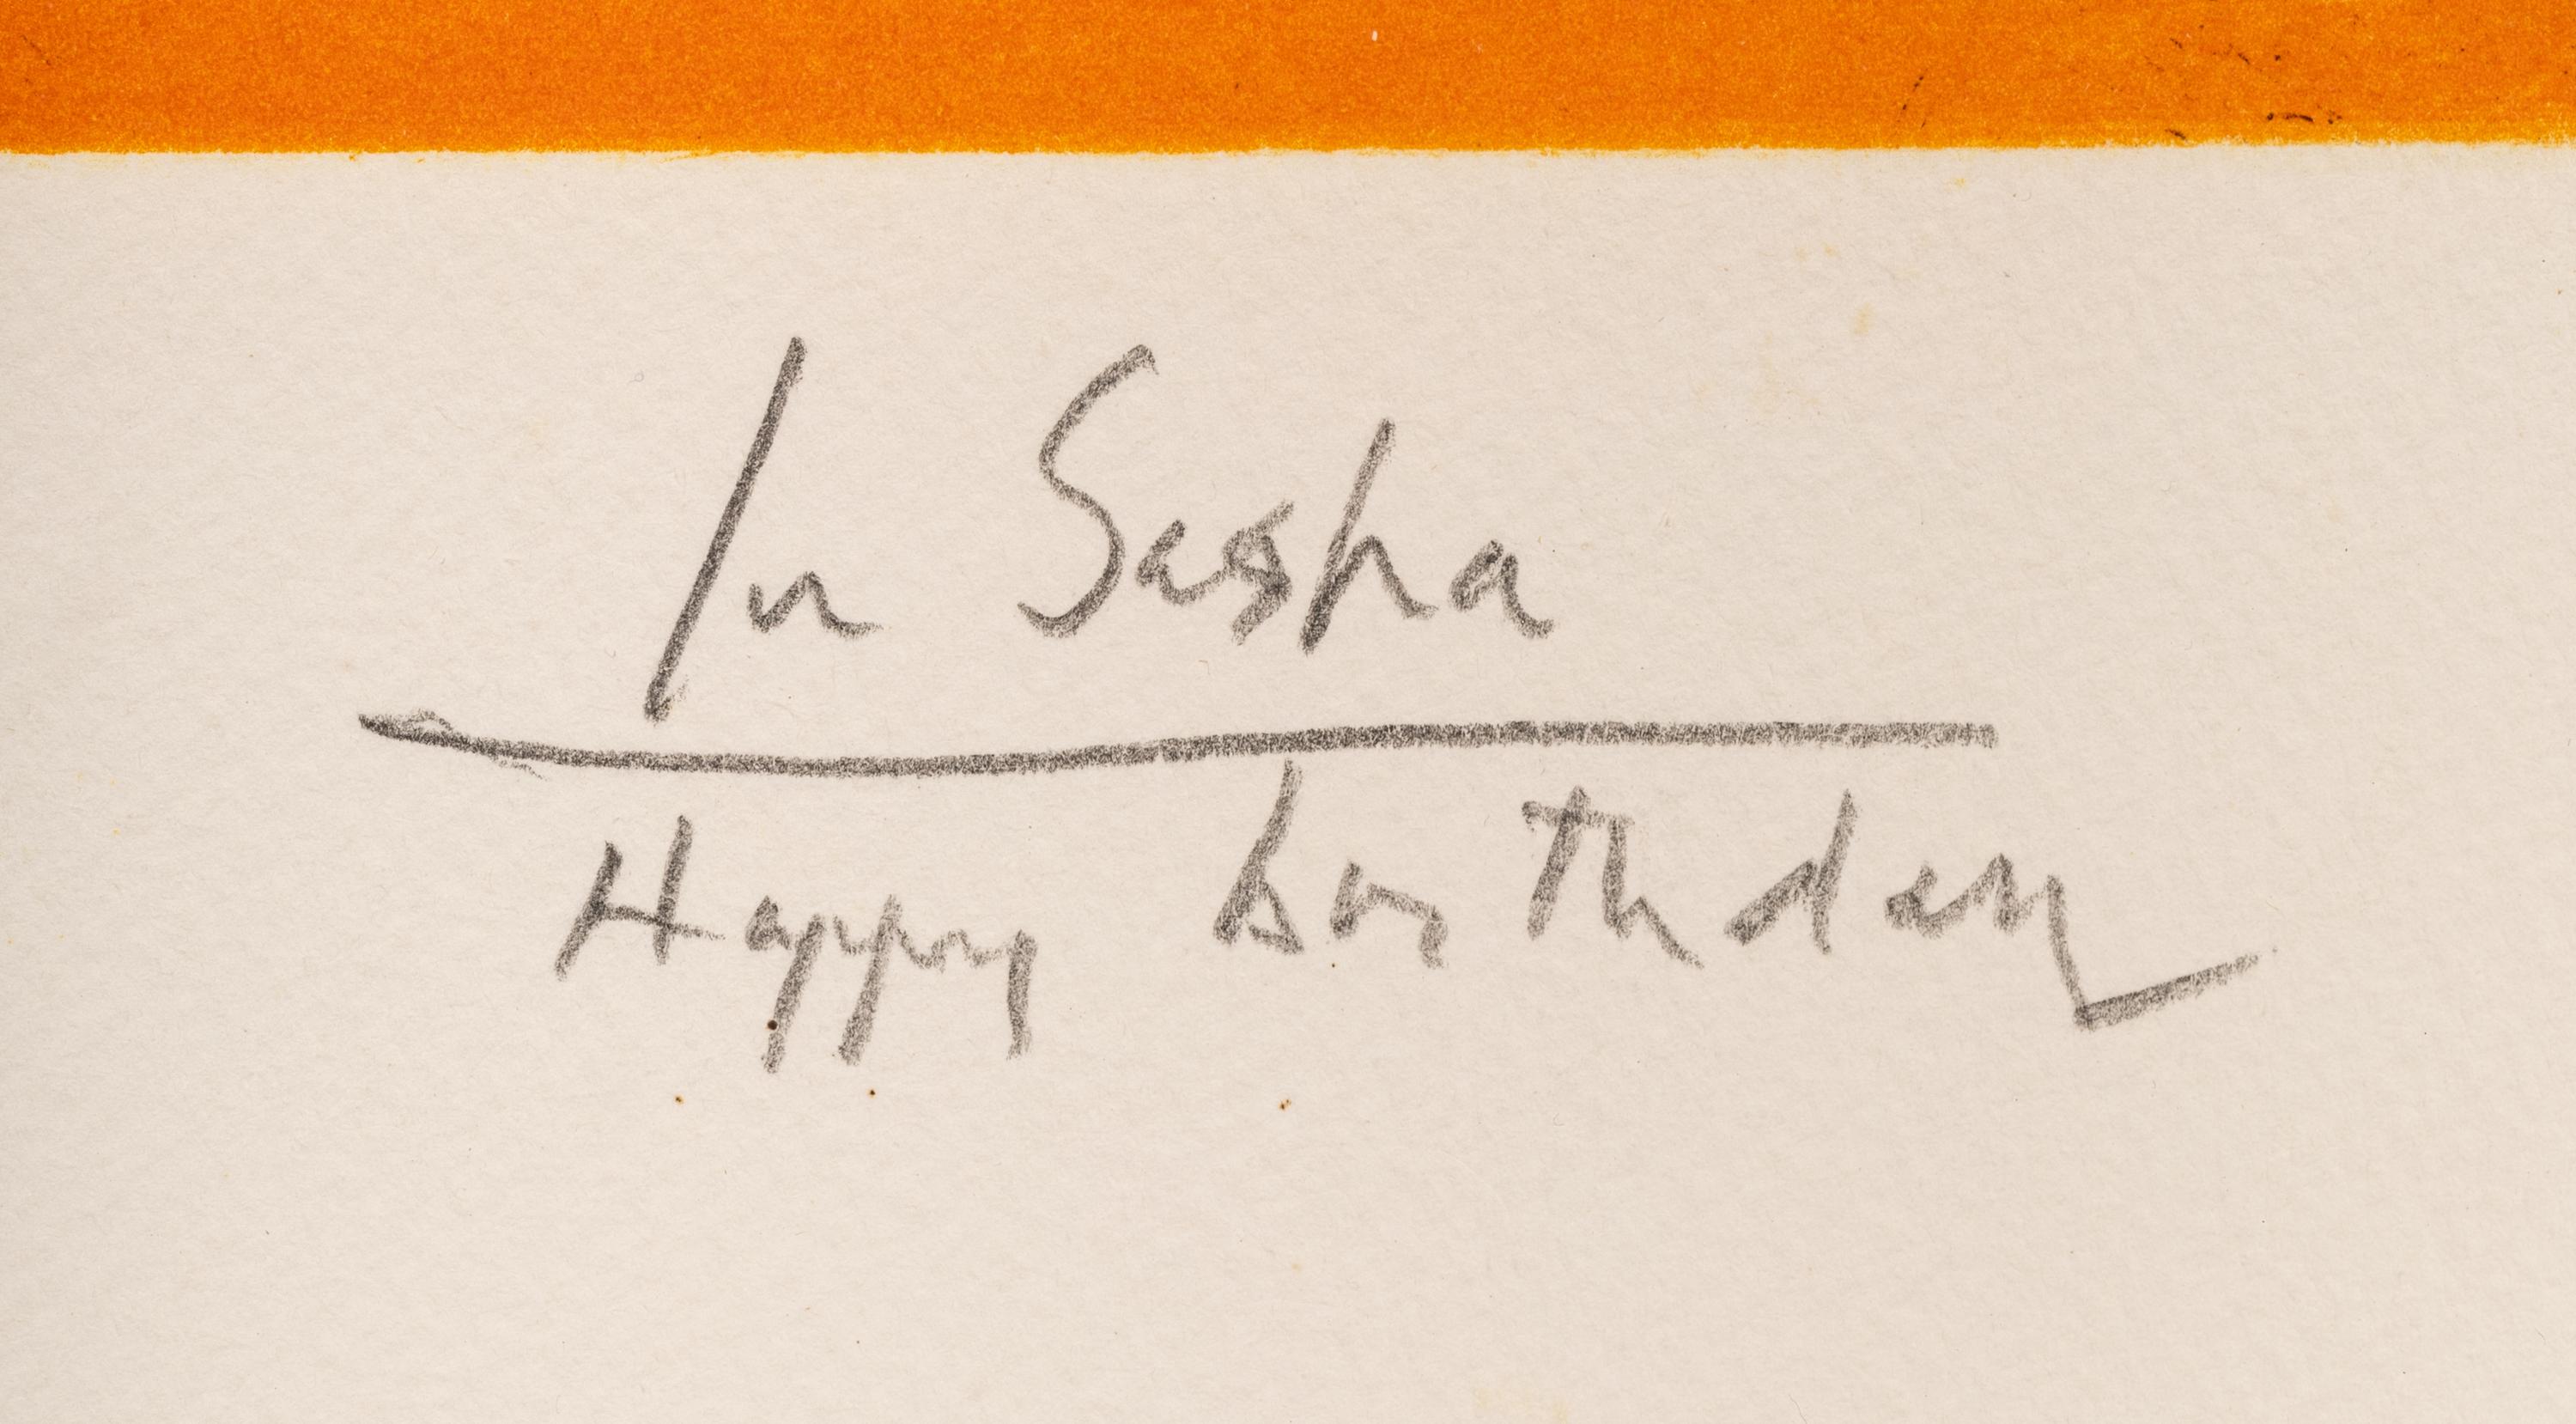 for Sasha
Happy birthday